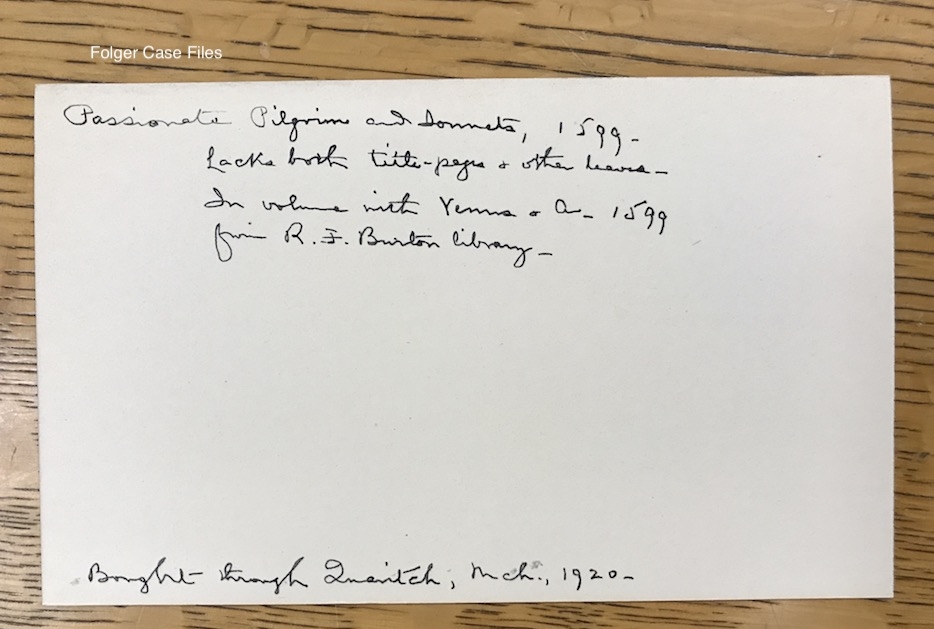 Folger Case Files
Passionate Pilgrim and Sonnets, 1599-
Lacks both title-pages & other leaves-
In volume with Venus & A- 1599
from R. F. Burton library-
Bought through Quaritch, Mch., 1920-